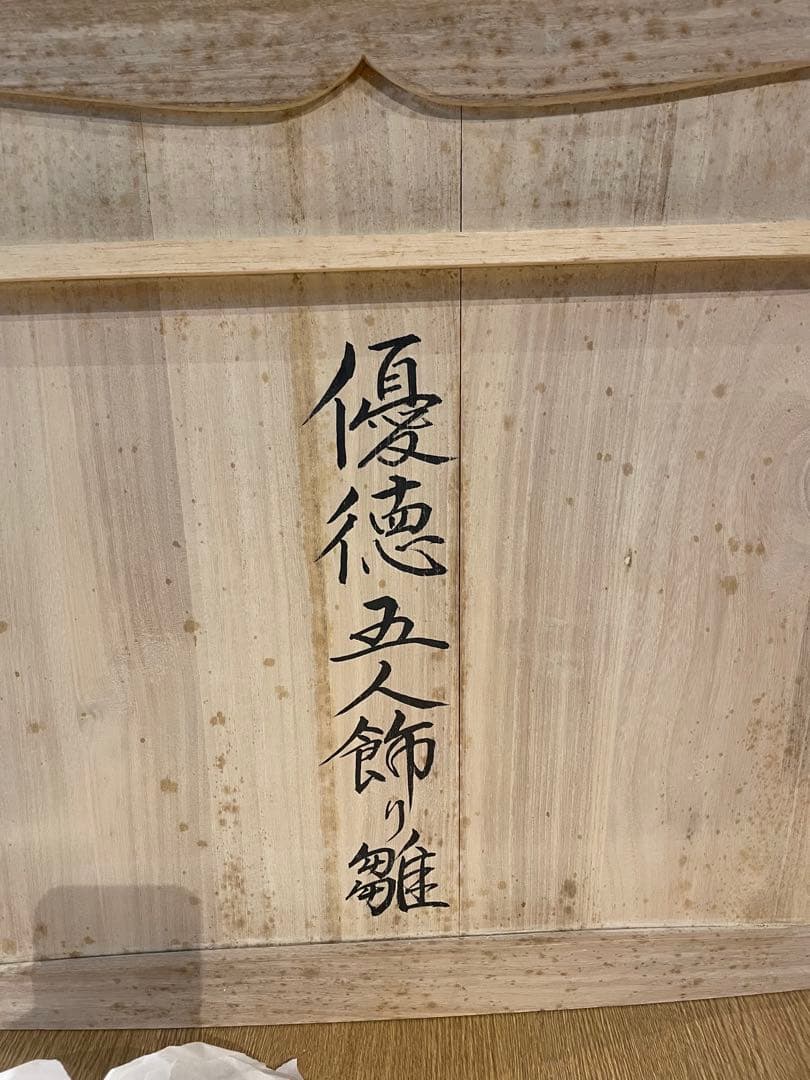 優徳五人飾り雛